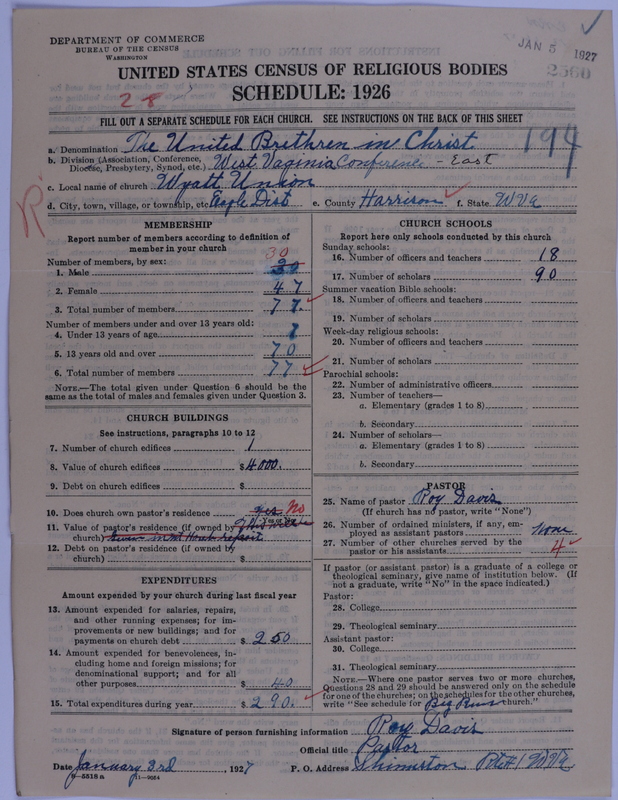 DEPARTMENT OF COMMERCE
BUREAU OF THE CENSUS
WASHINGTON
JAN 5 1927
2360
UNITED STATES CENSUS OF RELIGIOUS BODIES
28
SCHEDULE: 1926
FILL OUT A SEPARATE SCHEDULE FOR EACH CHURCH. SEE INSTRUCTIONS ON THE BACK OF THIS SHEET
194
a. Denomination The United Brethren in Christ
b. Division (Association, Conference, Diocese, Presbytery, Synod, etc.) West Virginia Conference - East
c. Local name of church Wyatt Union
d. City, town, village, or township, etc. Eagle Dist e. County Harrison f. State W Va
R
MEMBERSHIP
Report number of members according to definition of
member in your church
Number of members, by sex: 30
1. Male 30
2. Female 47
3. Total number of members 77.
Number of members under and over 13 years old:
4. Under 13 years of age 7
5. 13 years old and over 70
6. Total number of members 77
NOTE.—The total given under Question 6 should be the
same as the total of males and females given under Question 3.
CHURCH BUILDINGS
See instructions, paragraphs 10 to 12
7. Number of church edifices 1
8. Value of church edifices $4000.
9. Debt on church edifices $
10. Does church own pastor's residence yes No
11. Value of pastor's residence (if owned by
church)
12. Debt on pastor's residence (if owned by
church) $
EXPENDITURES
Amount expended by your church during last fiscal year
13. Amount expended for salaries, repairs,
and other running expenses; for im-
provements or new buildings; and for
payments on church debt $ 250
14. Amount expended for benevolences, in-
cluding home and foreign missions; for
denominational support; and for all
other purposes $ 40
15. Total expenditures during year $ 290.
CHURCH SCHOOLS
Report here only schools conducted by this church
Sunday schools:
16. Number of officers and teachers 18
17. Number of scholars 90
Summer vacation Bible schools:
18. Number of officers and teachers
19. Number of scholars
Week-day religious schools:
20. Number of officers and teachers
21. Number of scholars
Parochial schools:
22. Number of administrative officers
23. Number of teachers—
a. Elementary (grades 1 to 8)
b. Secondary
24. Number of scholars—
a. Elementary (grades 1 to 8)
b. Secondary
PASTOR
25. Name of pastor Roy Davis
(If church has no pastor, write "None")
26. Number of ordained ministers, if any, em-
ployed as assistant pastors None
27. Number of other churches served by the
pastor or his assistants 4
If pastor (or assistant pastor) is a graduate of a college or
theological seminary, give name of institution below. (If
not a graduate, write "No" in the space indicated.)
Pastor:
28. College
29. Theological seminary
Assistant pastor:
30. College
31. Theological seminary
NOTE.—Where one pastor serves two or more churches,
Questions 28 and 29 should be answered only on the schedule
for one of the churches; on the schedules for the other churches,
write "See schedule for Big Run church."
Signature of person furnishing information Roy Davis
Official title Pastor
Date January 3rd, 1927 P. O. Address Shinnston Rte #1 W Va
8—5518 a 11—9024